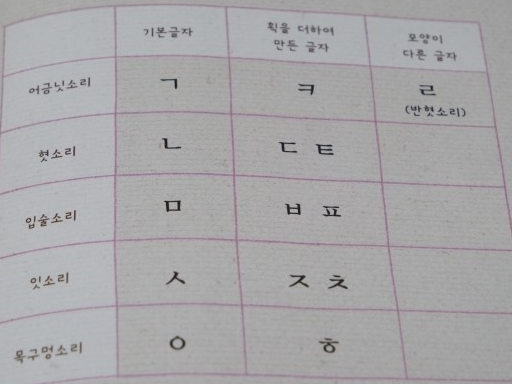 기본글자
획을 더하여
만든 글자
모양이
다른 글자
어금닛소리 ㄱ ㅋ ㄹ
(반혓소리)
혓소리 ㄴ ㄷ ㅌ
입술소리 ㅁ ㅂ ㅍ
잇소리 ㅅ ㅈ ㅊ
목구멍소리 ㅇ ㅎ